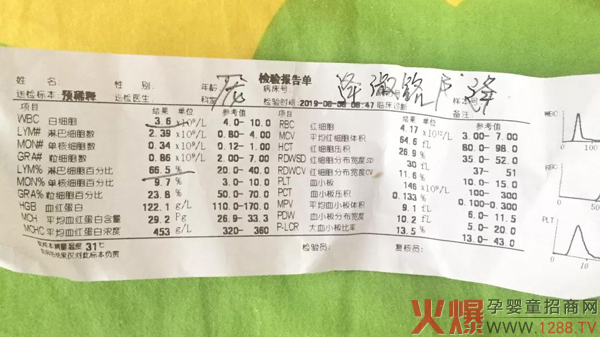 检验报告单
姓名: 性别: 年龄 病床号:
送检标本 预稀释 送检医生: 科别 检验时间 2019-08-08 08:47 临床诊断 备注:
项目 结果 单位 参考值 项目 结果 单位 参考值
WBC 白细胞 3.6 10⁹/L 4.0-10.0 RBC 红细胞 4.17 10¹²/L 3.00-7.00
LYM# 淋巴细胞数 2.39 10⁹/L 0.80-4.00 MCV 平均红细胞体积 64.6 fL 80.0-98.0
MON# 单核细胞数 0.34 10⁹/L 0.12-1.00 HCT 红细胞压积 26.9 % 35.0-52.0
GRA# 粒细胞数 0.86 10⁹/L 2.00-7.00 RDWSD 红细胞分布宽度SD 30 fL 37-51
LYM% 淋巴细胞百分比 66.5 % 20.0-40.0 RDWCV 红细胞分布宽度CV 11.6 % 10.0-15.0
MON% 单核细胞百分比 9.7 % 3.0-10.0 PLT 血小板 146 10⁹/L 100-300
GRA% 粒细胞百分比 23.8 % 50.0-70.0 PCT 血小板压积 0.133 %
HGB 血红蛋白 122.1 g/L 110.0-170.0 MPV 平均血小板体积 9.1 fL 6.0-11.5
MCH 平均血红蛋白含量 29.2 Pg 26.9-33.3 PDW 血小板分布宽度 10.2 fL 5.0-20.0
MCHC 平均血红蛋白浓度 453 g/L 320-360 P-LCR 大血小板比率 13.5 % 13.0-43.0
31℃
检验员: 复核员:
仅对此标本负责
WBC
RBC
PLT
火爆孕婴童招商网
www.1288.TV